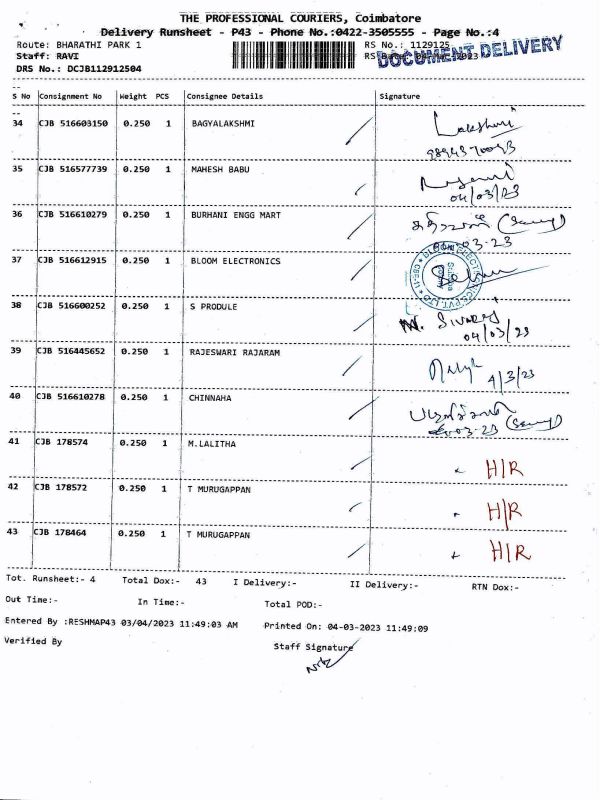 THE PROFESSIONAL COURIERS, Coimbatore
Delivery Runsheet - P43 - Phone No.:0422-3505555 - Page No.:4
Route: BHARATHI PARK 1 RS No.: 1129125
Staff: RAVI RS 2023
DOCUMENT DELIVERY
DRS No.: DCJB112912504
S No Consignment No Weight PCS Consignee Details Signature
34 CJB 516603150 0.250 1 BAGYALAKSHMI Lakshmi
9894370093
35 CJB 516577739 0.250 1 MAHESH BABU
04/03/23
36 CJB 516610279 0.250 1 BURHANI ENGG MART
03-23
37 CJB 516612915 0.250 1 BLOOM ELECTRONICS
38 CJB 516600252 0.250 1 S PRODULE
04/03/23
39 CJB 516445652 0.250 1 RAJESWARI RAJARAM
4/3/23
40 CJB 516610278 0.250 1 CHINNAHA
03-23
41 CJB 178574 0.250 1 M.LALITHA H/R
42 CJB 178572 0.250 1 T MURUGAPPAN H/R
43 CJB 178464 0.250 1 T MURUGAPPAN H/R
Tot. Runsheet:- 4 Total Dox:- 43 I Delivery:- II Delivery:- RTN Dox:-
Out Time:- In Time:- Total POD:-
Entered By :RESHMAP43 03/04/2023 11:49:03 AM Printed On: 04-03-2023 11:49:09
Verified By Staff Signature